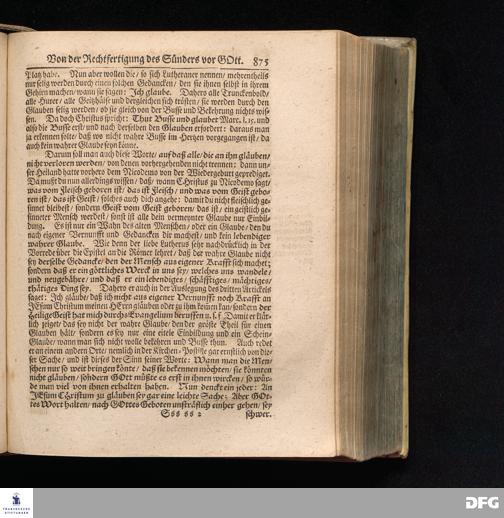 Von der Rechtfertigung des Sünders vor GOtt. 875
Platz habe. Nun aber wollen die/ so sich Lutheraner nennen/ mehrentheils
nur selig werden durch einen solchen Gedancken/ den sie ihnen selbst in ihrem
Gehirn machen/ wann sie sagen: Ich glaube. Dahero alle Trunckenbold/
alle Hurer/ alle Geitzhälse und dergleichen sich trösten/ sie werden durch den
Glauben selig werden/ ob sie gleich von der Busse und Bekehrung nichts wis-
sen. Da doch Christus spricht: Thut Busse und glaubet Marc. I. 15. und
also die Busse erst/ und nach derselben den Glauben erfordert: daraus man
ja erkennen solte/ daß wo nicht wahre Busse im Hertzen vorgegangen ist/ da
auch kein wahrer Glaube seyn könne.
Darum soll man auch diese Worte/ auf daß alle/ die an ihn gläuben/
nicht verloren werden/ von denen vorhergehenden nicht trennen: dann un-
ser Heiland hatte vorhero dem Nicodemo von der Wiedergeburt geprediget.
Da must du nun allerdings wissen/ daß/ wann Christus zu Nicodemo sagt/
was vom Fleisch geboren ist/ das ist Fleisch/ und was vom Geist gebo-
ren ist/ das ist Geist/ solches auch dich angehe: damit du nicht fleischlich ge-
sinnet bleibest/ sondern Geist vom Geist geboren/ das ist/ ein geistlich ge-
sinneter Mensch werdest/ sonst ist alle dein vermeynter Glaube nur Einbil-
dung. Es ist nur ein Wahn des alten Menschen/ oder ein Glaube/ den du
nach eigener Vernunfft und Gedancken dir machest/ und kein lebendiger
wahrer Glaube. Wie denn der liebe Lutherus sehr nachdrücklich in der
Vorrede über die Epistel an die Römer lehret/ daß der wahre Glaube nicht
sey derselbe Gedancke/ den der Mensch aus eigener Krafft sich machet;
sondern daß er ein göttliches Werck in uns sey/ welches uns wandele/
und neugebähre/ und daß er ein lebendiges/ schäfftiges/ mächtiges/
thätiges Ding sey. Dahero er auch in der Auslegung des dritten Artickels
saget: Ich gläube/ daß ich nicht aus eigener Vernunfft noch Krafft an
JEsum Christum meinen HErrn gläuben oder zu ihm kommen kan/ sondern der
Heilige Geist hat mich durchs Evangelium beruffen u. s. f. Damit er klär-
lich zeiget/ das sey nicht der wahre Glaube/ den der gröste Theil für einen
Glauben hält/ sondern es sey nur eine eitele Einbildung und ein Schein-
Glaube/ wann man sich nicht wolle bekehren und Busse thun. Auch redet
er an einem andern Orte/ nemlich in der Kirchen-Postille gar ernstlich von die-
ser Sache/ und ist dieses der Sinn seiner Worte: Wann man die Men-
schen nur so weit bringen könte/ daß sie bekennen möchten/ sie könnten
nicht gläuben/ sondern GOtt müste es erst in ihnen wircken/ so wür-
de man viel von ihnen erhalten haben. Nun denckt ein jeder: An
JEsum Christum zu gläuben sey gar eine leichte Sache; Aber GOt-
tes Wort halten/ nach GOttes Geboten unsträflich einher gehen/ sey
Sss ss 2 schwer.
FRANCKESCHE
STIFTUNGEN
DFG